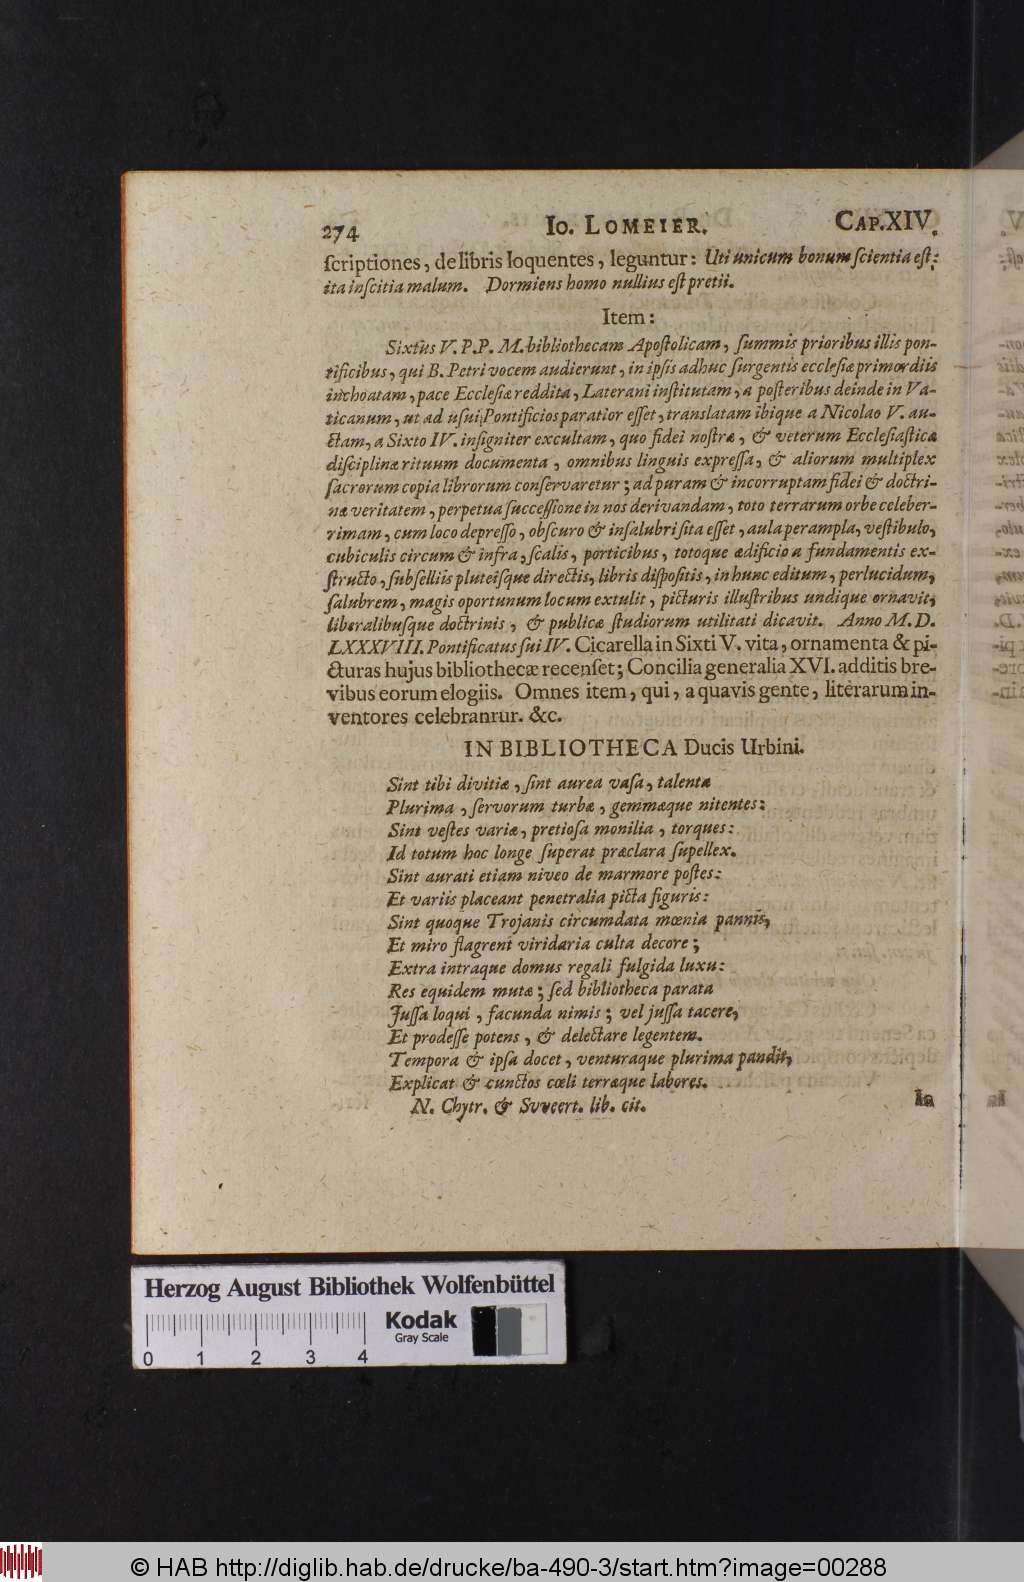 274 Io. LOMEIER. CAP. XIV.
ſcriptiones, de libris loquentes, leguntur: Uti unicum bonum ſcientia eſt:
ita inſcitia malum. Dormiens homo nullius eſt pretii.
Item:
Sixtus V. P. P. M. bibliothecam Apoſtolicam, ſummis prioribus illis pon-
tificibus, qui B. Petri vocem audierunt, in ipſis adhuc ſurgentis eccleſiæ primordiis
inchoatam, pace Eccleſiæ reddita, Laterani inſtitutam, a poſteribus deinde in Va-
ticanum, ut ad uſui Pontificios paratior eſſet, translatam ibique a Nicolao V. au-
ctam, a Sixto IV. inſigniter excultam, quo fidei noſtræ, & veterum Eccleſiaſticæ
diſciplinæ rituum documenta, omnibus linguis expreſſa, & aliorum multiplex
ſacrorum copia librorum conſervaretur; ad puram & incorruptam fidei & doctri-
næ veritatem, perpetua ſucceſſione in nos derivandam, toto terrarum orbe celeber-
rimam, cum loco depreſſo, obſcuro & inſalubri ſita eſſet, aula perampla, veſtibulo,
cubiculis circum & infra, ſcalis, porticibus, totoque ædificio a fundamentis ex-
ſtructo, ſubſelliis pluteiſque directis, libris diſpoſitis, in hunc editum, perlucidum,
ſalubrem, magis oportunum locum extulit, picturis illuſtribus undique ornavit,
liberalibuſque doctrinis, & publicæ ſtudiorum utilitati dicavit. Anno M. D.
LXXXVIII. Pontificatus ſui IV. Cicarella in Sixti V. vita, ornamenta & pi-
cturas hujus bibliothecæ recenſet; Concilia generalia XVI. additis bre-
vibus eorum elogiis. Omnes item, qui, a quavis gente, literarum in-
ventores celebranrur. &c.
IN BIBLIOTHECA Ducis Urbini.
Sint tibi divitiæ, ſint aurea vaſa, talenta
Plurima, ſervorum turbæ, gemmæque nitentes:
Sint veſtes variæ, pretioſa monilia, torques:
Id totum hoc longe ſuperat præclara ſupellex.
Sint aurati etiam niveo de marmore poſtes:
Et variis placeant penetralia picta figuris:
Sint quoque Trojanis circumdata mœnia pannis,
Et miro flagrent viridaria culta decore;
Extra intraque domus regali fulgida luxu:
Res equidem mutæ; ſed bibliotheca parata
Juſſa loqui, facunda nimis; vel juſſa tacere,
Et prodeſſe potens, & delectare legentem.
Tempora & ipſa docet, venturaque plurima pandit,
Explicat & cunctos cœli terraque labores.
N. Chytr. & Svveert. lib. cit.
In
Herzog August Bibliothek Wolfenbüttel
0 1 2 3 4 Kodak
Gray Scale
© HAB http://diglib.hab.de/drucke/ba-490-3/start.htm?image=00288